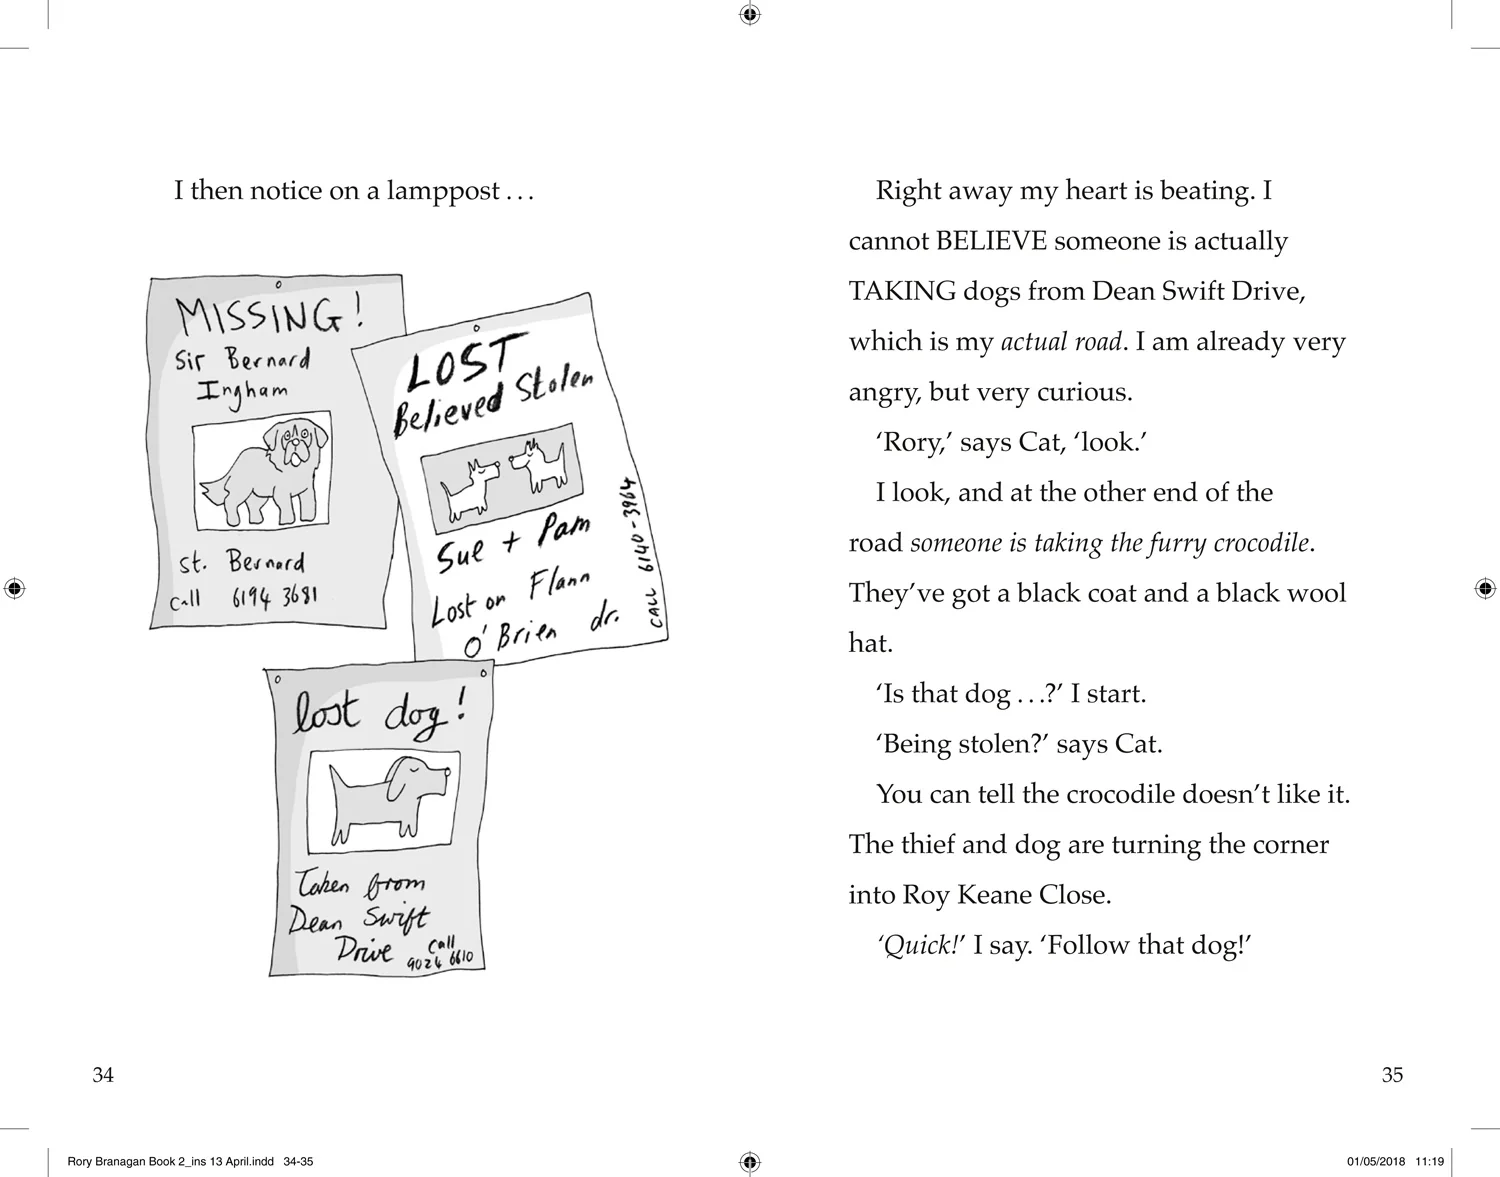 I then notice on a lamppost . . .
MISSING!
Sir Bernard
Ingham
St. Bernard
Call 6194 3681
LOST
Believed Stolen
Sue + Pam
Lost on Flann
O'Brien dr.
CALL 6140-3964
lost dog!
Taken from
Dean Swift
Drive
Call
9024 6610
34
Right away my heart is beating. I
cannot BELIEVE someone is actually
TAKING dogs from Dean Swift Drive,
which is my actual road. I am already very
angry, but very curious.
‘Rory,’ says Cat, ‘look.’
I look, and at the other end of the
road someone is taking the furry crocodile.
They’ve got a black coat and a black wool
hat.
‘Is that dog . . .?’ I start.
‘Being stolen?’ says Cat.
You can tell the crocodile doesn’t like it.
The thief and dog are turning the corner
into Roy Keane Close.
‘Quick!’ I say. ‘Follow that dog!’
35
Rory Branagan Book 2_ins 13 April.indd 34-35
01/05/2018 11:19